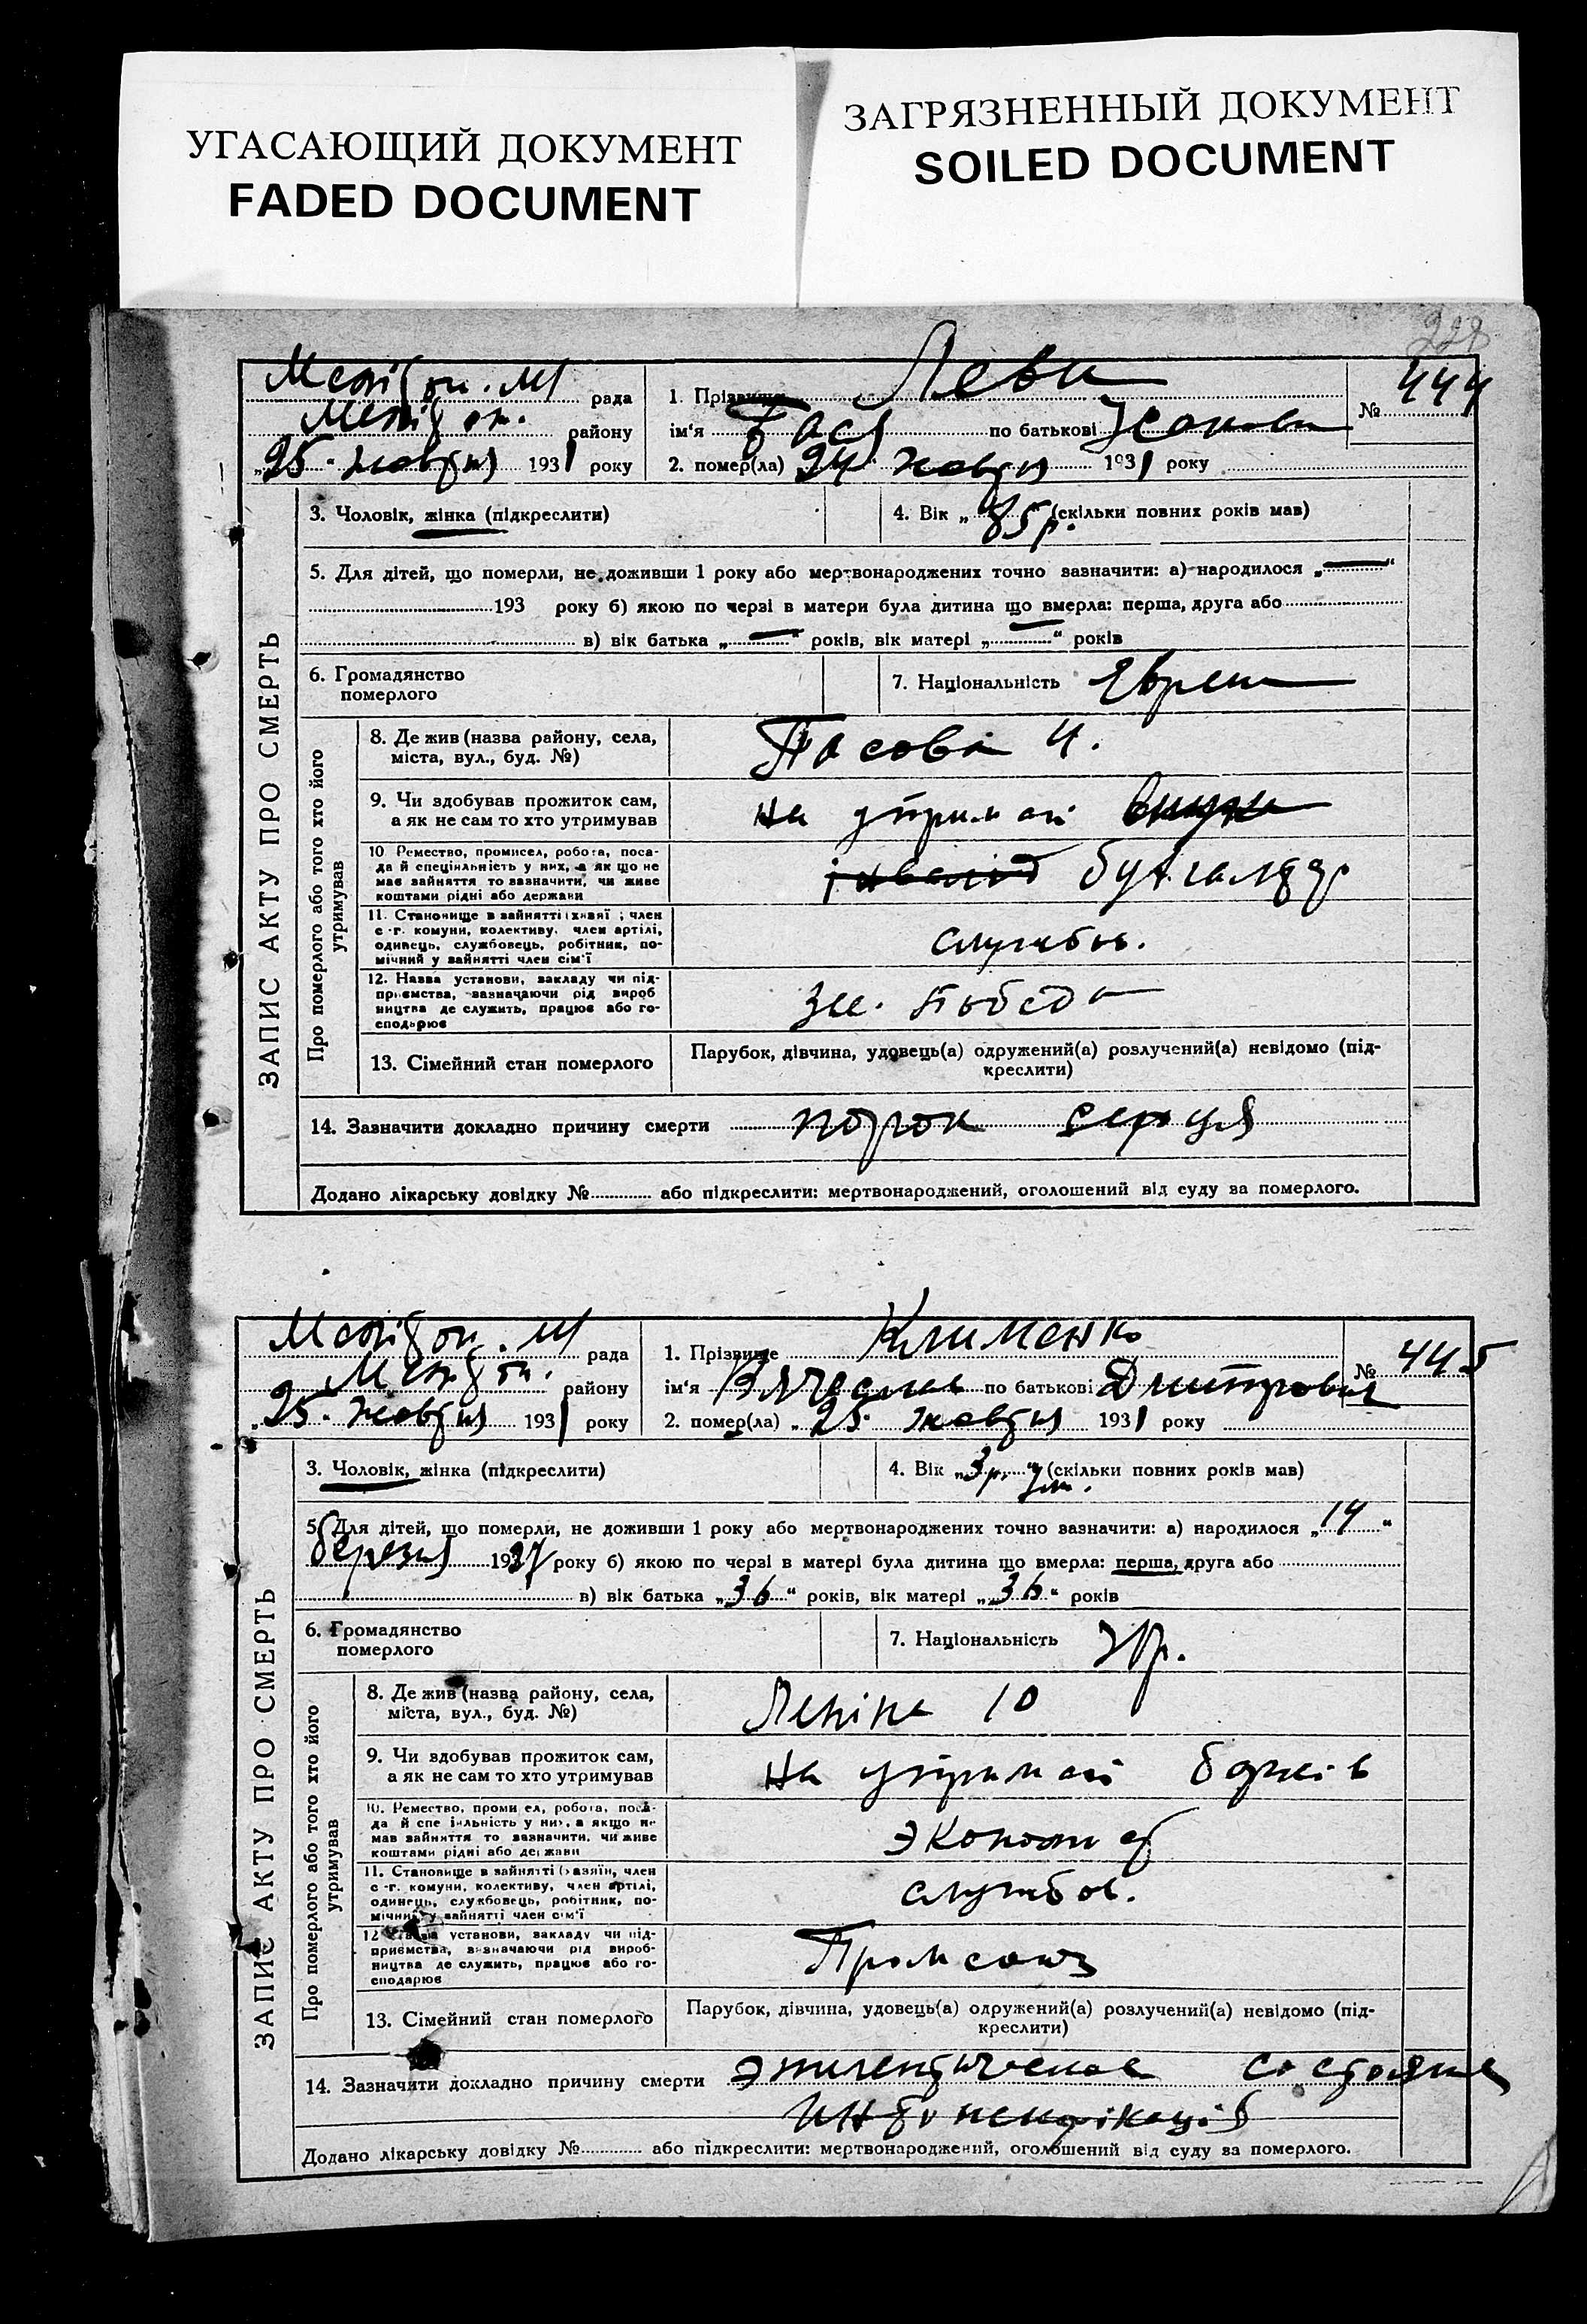 УГАСАЮЩИЙ ДОКУМЕНТ
FADED DOCUMENT
ЗАГРЯЗНЕННЫЙ ДОКУМЕНТ
SOILED DOCUMENT
228
рада
району
„25" жовтня 1931 року
1. Прізвище Леви
№ 444
ім'я Бася по батькові
2. помер(ла) 24 жовтня 1931 року
ЗАПИС АКТУ ПРО СМЕРТЬ
3. Чоловік, жінка (підкреслити)
4. Вік „85 р. (скільки повних років мав)
5. Для дітей, що померли, не доживши 1 року або мертвонароджених точно зазначити: а) народилося „—"
193 року б) якою по черзі в матери була дитина що вмерла: перша, друга або
в) вік батька „—" років, вік матері „—" років
6. Громадянство
померлого
7. Національність Еврей
Про померлого або того хто його
утримував
8. Де жив (назва району, села,
міста, вул., буд. №)
4.
9. Чи здобував прожиток сам,
а як не сам то хто утримував
на утриман
10 Ремество, промисел, робота, поса-
да й спеціяльність у них, а як що не
має зайняття то зазначити, чи живе
коштами рідні або держави
інвалід бухгалтер
11. Становище в зайнятті (хазяї ; член
с -г. комуни, колективу, член артілі,
одинець, службовець, робітник, по-
мічний у зайнятті член сім'ї
службов.
12. Назва установи, закладу чи під-
приємства, зазначаючи рід вироб
ництва де служить, працює або го-
сподарює
Победа
13. Сімейний стан померлого
Парубок, дівчина, удовець(а) одружений(а) розлучений(а) невідомо (під-
креслити)
14. Зазначити докладно причину смерти порок серця
Додано лікарську довідку № або підкреслити: мертвонароджений, оголошений від суду за померлого.
рада
району
„25" жовтня 1931 року
1. Прізвище Клименко
№ 445
ім'я Вячеслав по батькові Дмитрович
2. помер(ла) „25" жовтня 1931 року
ЗАПИС АКТУ ПРО СМЕРТЬ
3. Чоловік, жінка (підкреслити)
4. Вік „3 р. 7 м. (скільки повних років мав)
5. Для дітей, що померли, не доживши 1 року або мертвонароджених точно зазначити: а) народилося „14"
березня 1927 року б) якою по черзі в матері була дитина що вмерла: перша, друга або
в) вік батька „36" років, вік матері „36" років
6. Громадянство
померлого
7. Національність Укр.
Про померлого або того хто його
утримував
8. Де жив (назва району, села,
міста, вул., буд. №)
Леніна 10
9. Чи здобував прожиток сам,
а як не сам то хто утримував
на утриман батьків
10. Ремество, промисел, робота, поса-
да й спеціяльність у них, а якщо не
має зайняття то зазначити, чи живе
коштами рідні або держави
экономіст
11. Становище в зайнятті (хазяїн, член
с -г. комуни, колективу, член артілі,
одинець, службовець, робітник, по-
мічний у зайнятті член сім'ї
службов.
12 Назва установи, закладу чи під-
приємства, визначаючи рід вироб-
ництва де служить, працює або го-
сподарює
Промсоюз
13. Сімейний стан померлого
Парубок, дівчина, удовець(а) одружений(а) розлучений(а) невідомо (під-
креслити)
14. Зазначити докладно причину смерти эпилептическое состояние
Додано лікарську довідку № або підкреслити: мертвонароджений, оголошений від суду за померлого.